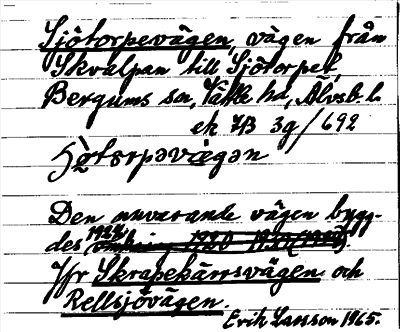 Sjötorpevägen, vägen från
Skvalpan till Sjötorpet,
Bergums sn, Vättle hd, Älvsb. l.
ek 7B 3g/692
Den nuvarande vägen bygg-
des 1924
Jfr Skrapekärrsvägen och
Rellsjövägen.
Erik Larsson 1965.